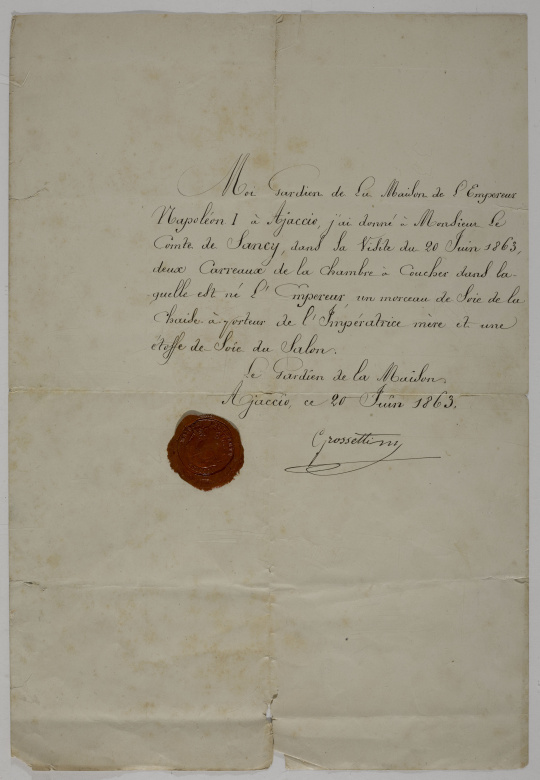 Moi Gardien de La Maison de l'Empereur
Napoléon I à Ajaccio, j'ai donné à Monsieur Le
Comte de Sancy, dans sa Visite du 20 Juin 1863,
deux Carreaux de la Chambre à Coucher dans la-
quelle est né L'Empereur, un morceau de Soie de la
Chaise à porteur de l'Impératrice mère et une
étoffe de Soie du Salon.
Le Gardien de la Maison.
Ajaccio, ce 20 Juin 1863.